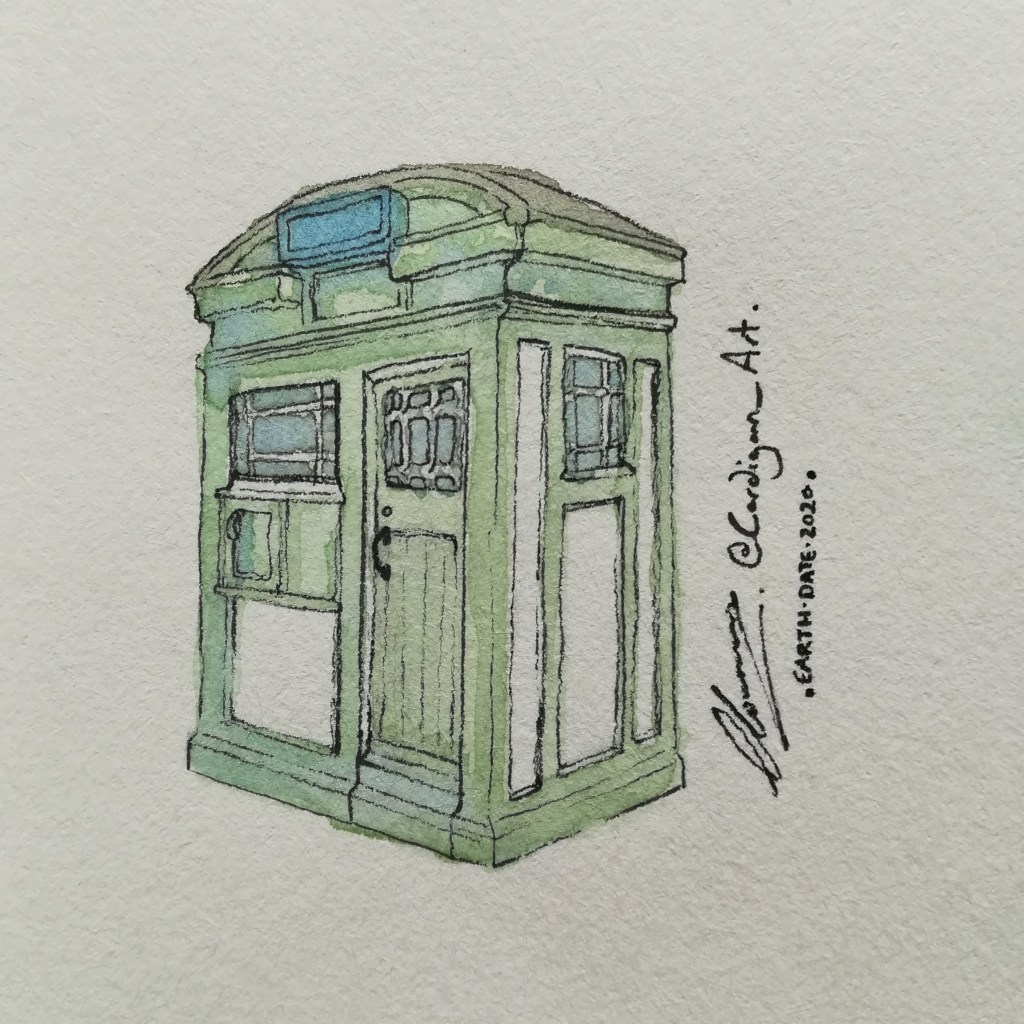 @Cardigan_Art.
.EARTH.DATE.2020.